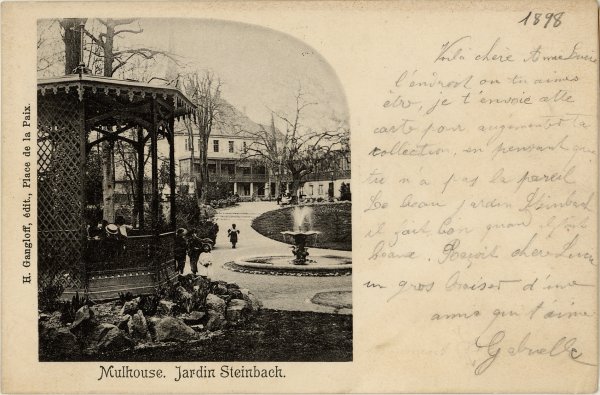 1898
Voilà chère Amie Lucie
l'endroit ou tu aimes
être, je t'envoie cette
carte pour augmenter ta
collection, en pensant que
tu n'a pas la pareil
Le beau Jardin Steinbach
il fait bon quand il fait
beau. Reçoit chère Lucie
un gros baiser d'une
amie qui t'aime
Gabrielle
H. Gangloff, édit., Place de la Paix.
Mulhouse. Jardin Steinbach.